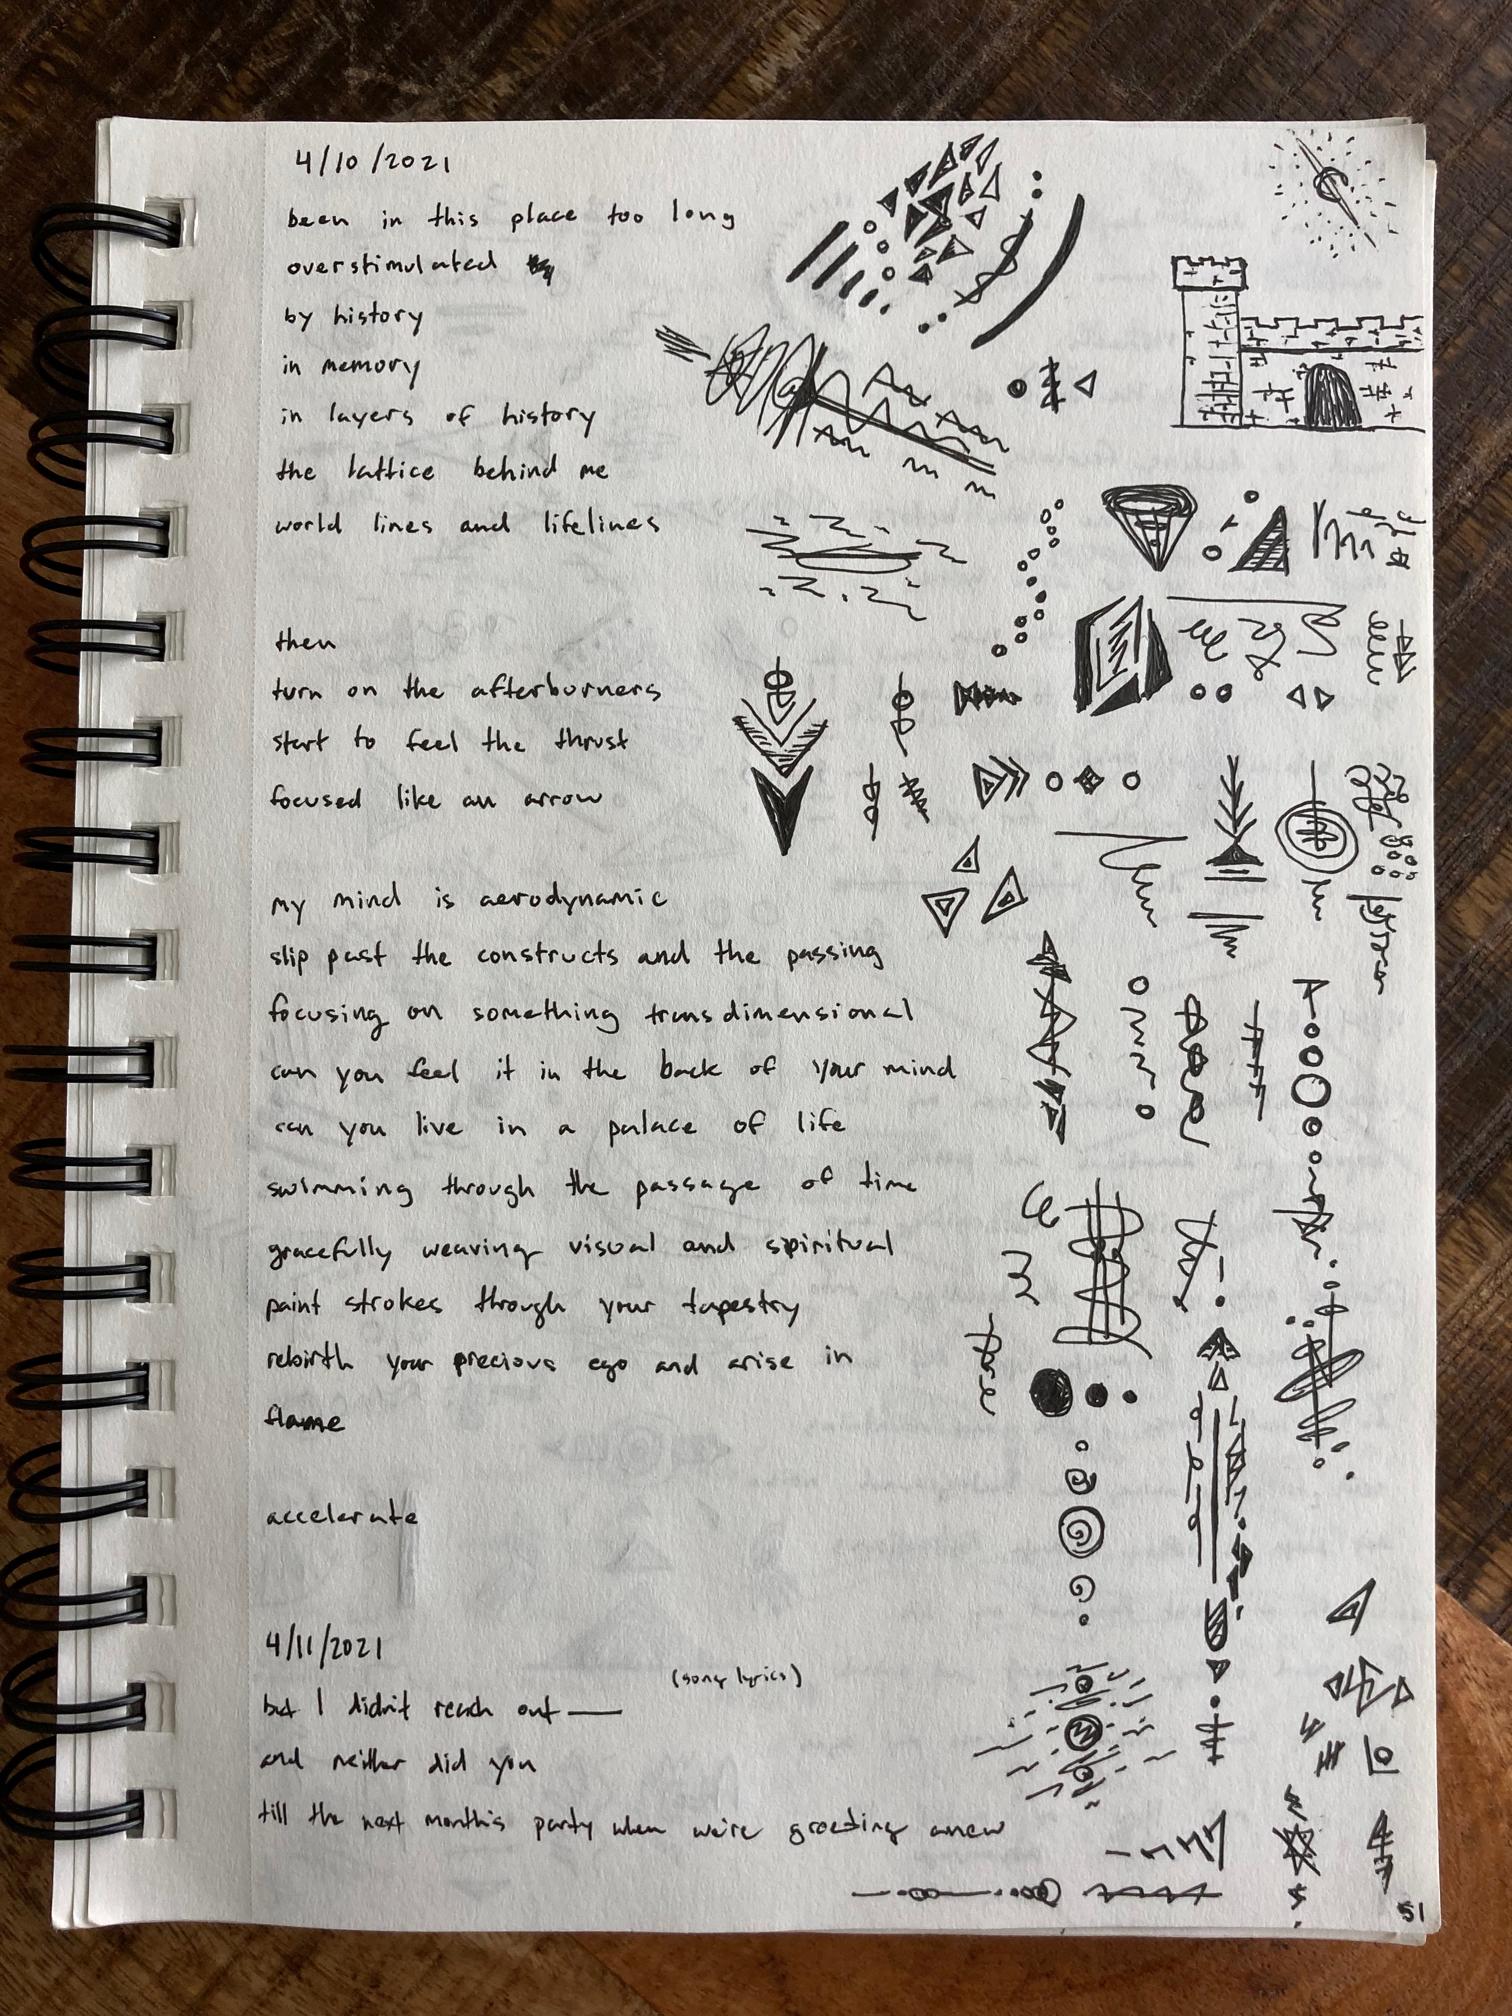 4/10/2021
been in this place too long
overstimulated
by history
in memory
in layers of history
the lattice behind me
world lines and lifelines
then
turn on the afterburners
start to feel the thrust
focused like an arrow
my mind is aerodynamic
slip past the constructs and the passing
focusing on something transdimensional
can you feel it in the back of your mind
can you live in a palace of life
swimming through the passage of time
gracefully weaving visual and spiritual
paint strokes through your tapestry
rebirth your precious ego and arise in
flame
accelerate
4/11/2021
(song lyrics)
but I didn't reach out —
and neither did you
till the next month's party when we're greeting anew
51